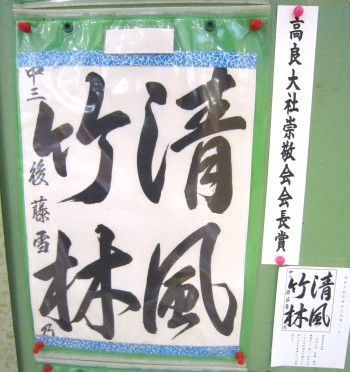 高良大社崇敬会会長賞
清風
竹林
中三 後藤雪乃
清風
竹林